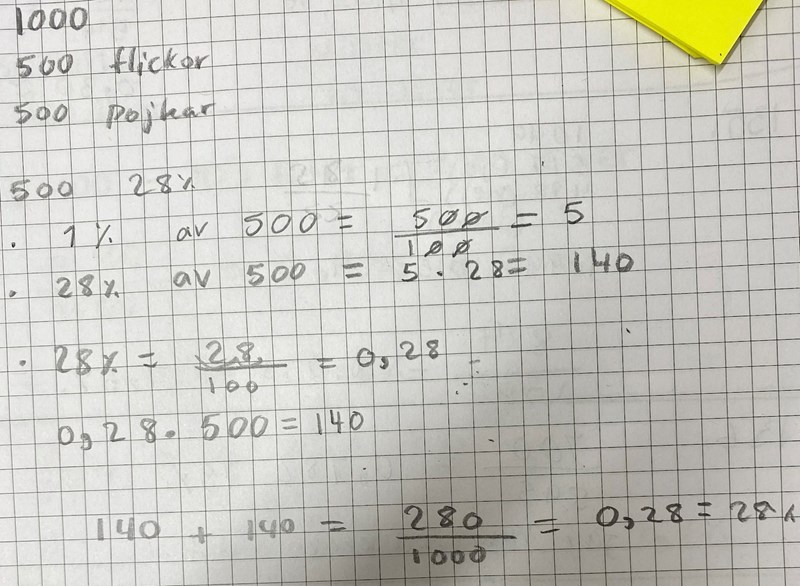 1000
500 flickor
500 pojkar
500 28%
. 1% av 500 = 500/100 = 5
. 28% av 500 = 5 · 28 = 140
. 28% = 28/100 = 0,28
0,28 · 500 = 140
140 + 140 = 280/1000 = 0,28 = 28%